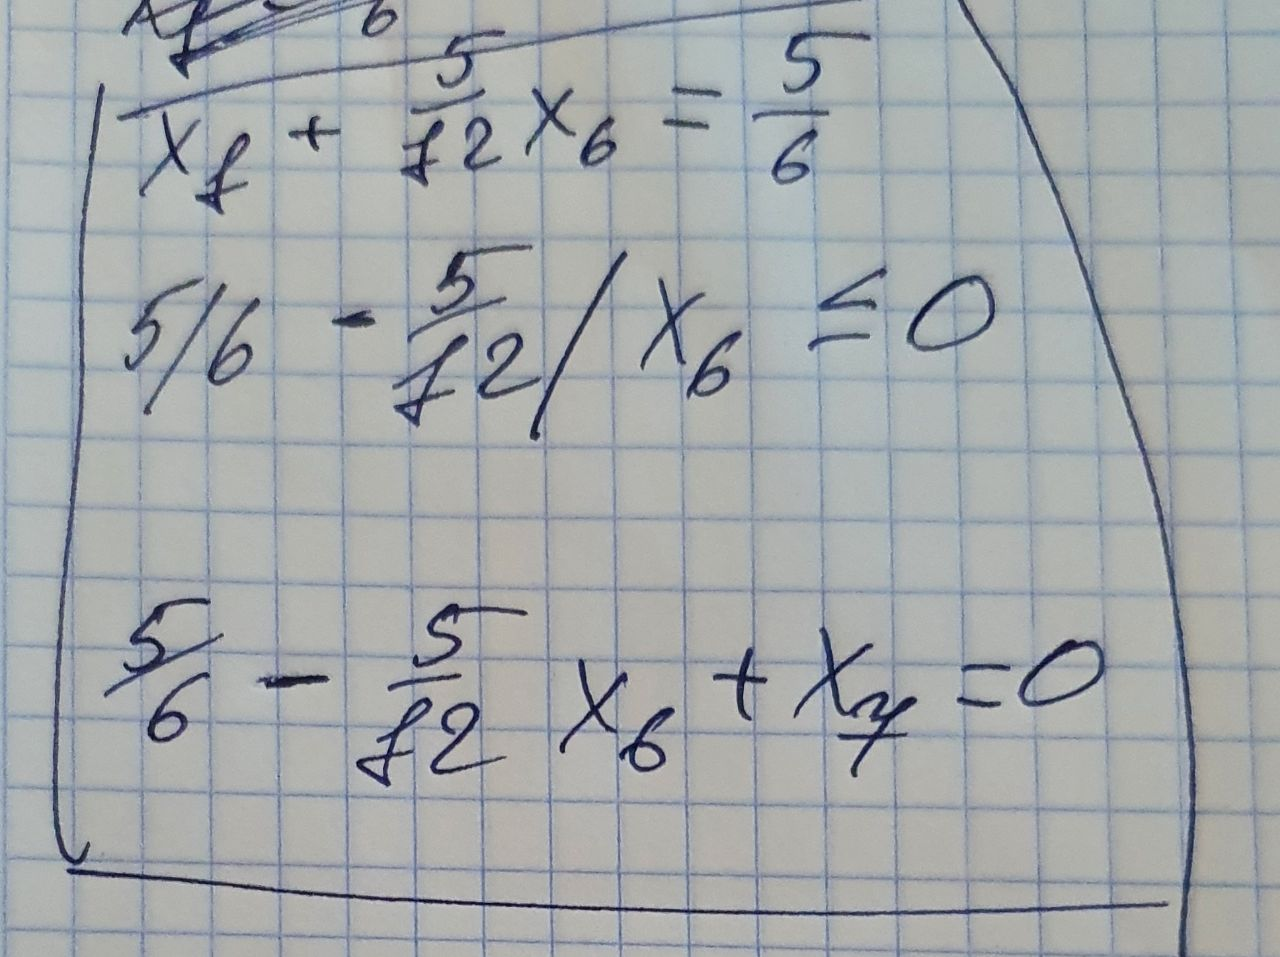 x₁ + 5/12 x₆ = 5/6
5/6 - 5/12 / x₆ ≤ 0
5/6 - 5/12 x₆ + x₇ = 0